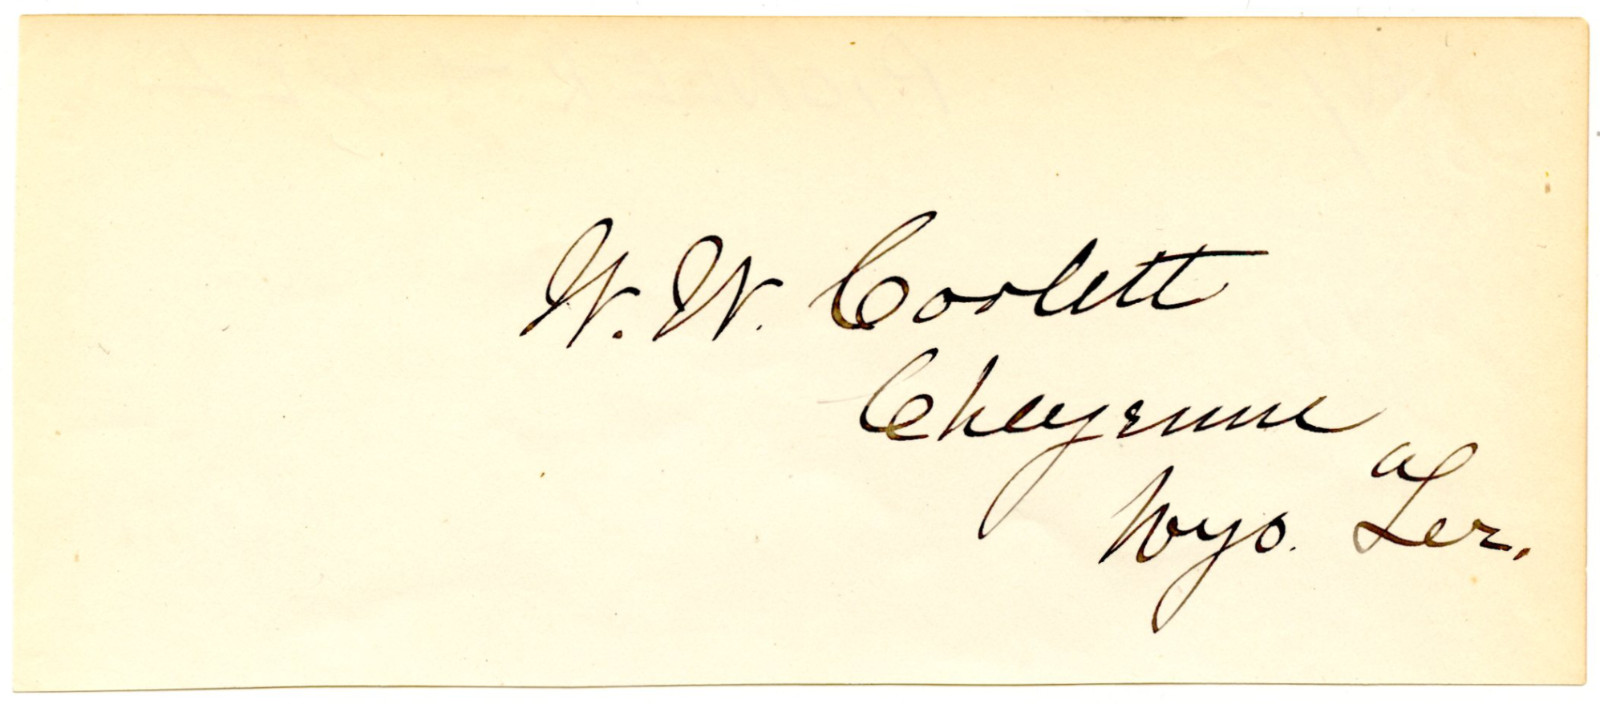 W. W. Corlett
Cheyenne
Wyo. Ter.